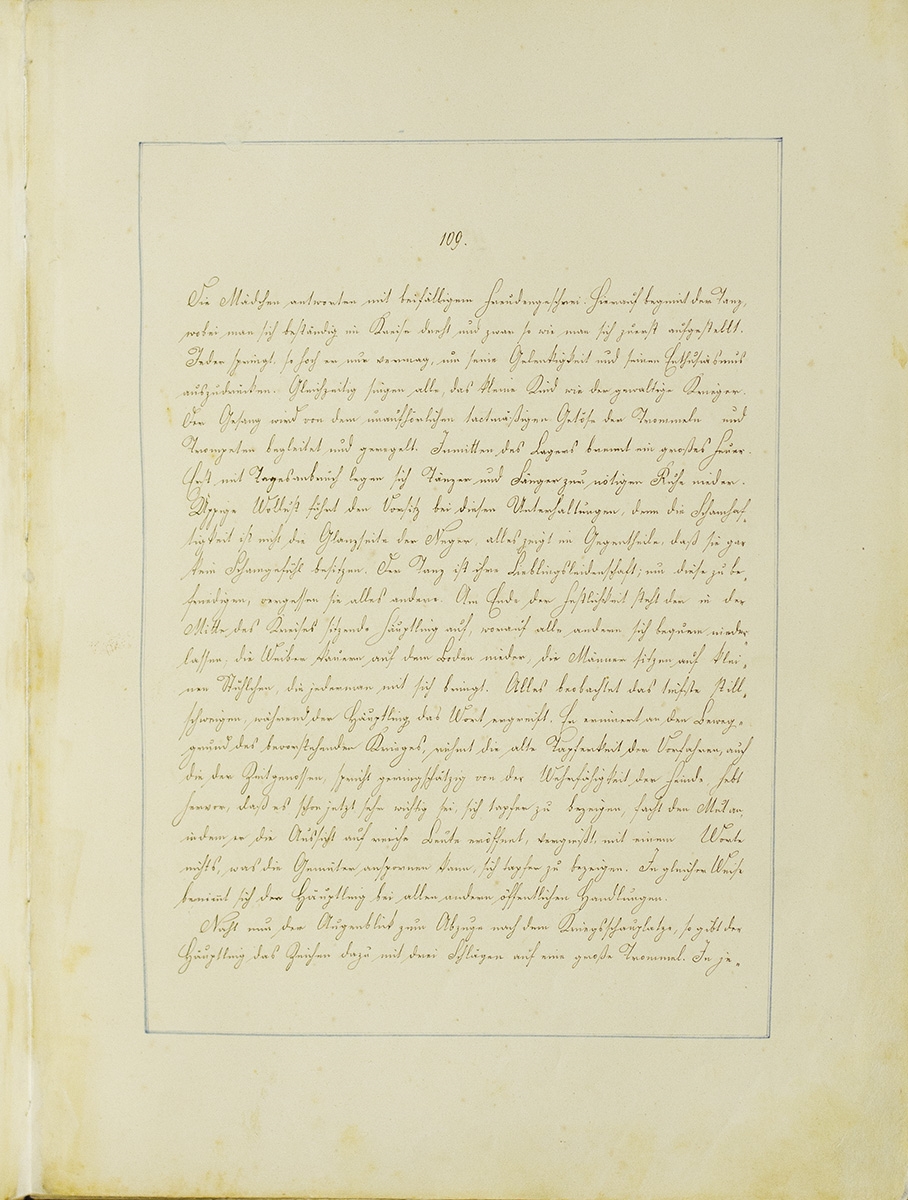 109.
Die Mädchen antworten mit beifälligem Freudengeschrei. Hierauf beginnt der Tanz,
wobei man sich beständig im Kreise dreht und zwar so wie man sich zuerst aufgestellt.
Jeder springt, so hoch er nur vermag, um seine Gelenkigkeit und seinen Enthusiasmus
auszudrücken. Gleichzeitig singen alle, das kleine Kind wie der gewaltige Krieger.
Der Gesang wird von dem unaufhörlichen tactmäßigen Getöse der Trommeln und
Trompeten begleitet und geregelt. Inmitten des Lagers brennt ein großes Feuer.
Erst mit Tagesanbruch legen sich Tänzer und Sänger zur nötigen Ruhe nieder.
Üppige Wollust führt den Vorsitz bei diesen Unterhaltungen, denn die Schamhaf-
tigkeit ist nicht die Glanzseite der Neger, alles zeigt im Gegentheile, daß sie gar
kein Schamgefühl besitzen. Der Tanz ist ihre Lieblingsleidenschaft; um diese zu be-
friedigen, vergessen sie alles andere. Am Ende der Festlichkeit steht der in der
Mitte des Kreises sitzende Häuptling auf, worauf alle andern sich bequem nieder-
lassen, die Weiber kauern auf dem Boden nieder, die Männer sitzen auf klei-
nen Stühlchen, die jederman mit sich bringt. Alles beobachtet das tiefste Still-
schweigen, während der Häuptling das Wort ergreift. Er erinnert an den Beweg-
grund des bevorstehenden Krieges, rühmt die alte Tapferkeit der Vorfahren, auch
die der Zeitgenossen, spricht geringschätzig von der Wehrfähigkeit der Feinde hebt
hervor, daß es schon jetzt sehr wichtig sei, sich tapfer zu bezeigen, facht den Mut an,
indem er die Aussicht auf reiche Beute eröffnet, vergißt, mit einem Worte
nichts, was die Gemüter anspornen kann, sich tapfer zu bezeigen. In gleicher Weise
benimmt sich der Häuptling bei allen andern öffentlichen Handlungen.
Naht nun der Augenblick zum Abzuge nach dem Kriegsschauplatze, so gibt der
Häuptling das Zeichen dazu mit drei Schlägen auf eine große Trommel. In je-